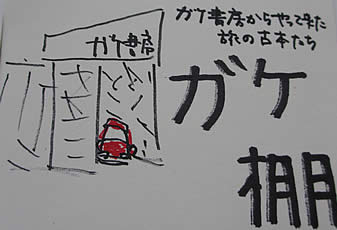 ガケ書房
ガケ書房からやって来た
旅の古本たち
ガケ
棚